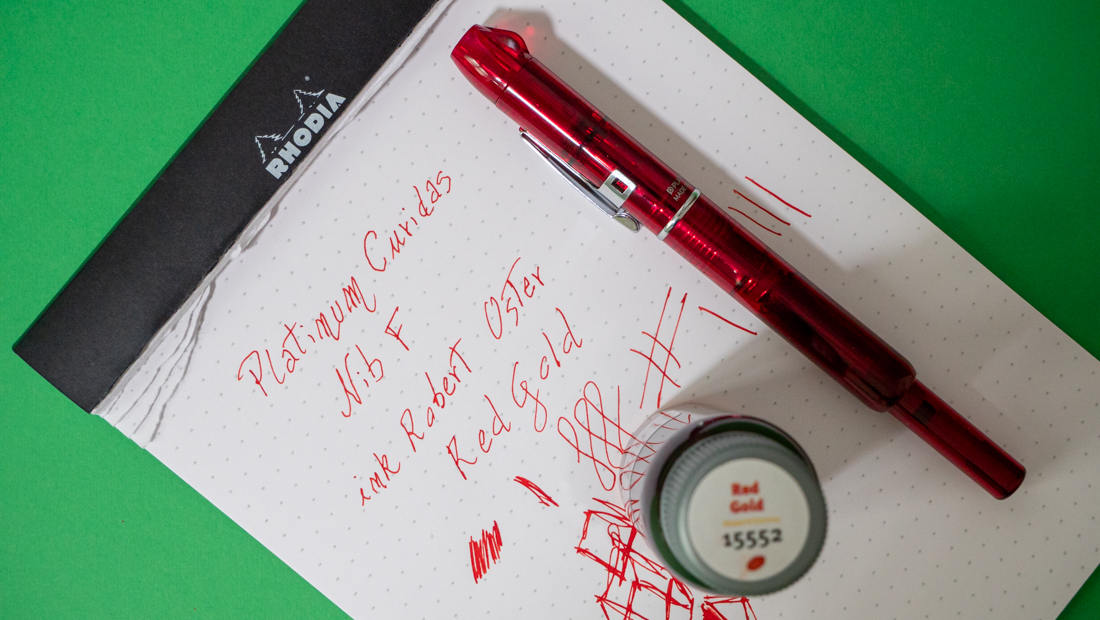 RHODIA
Platinum Curidas
Nib F
ink Robert Oster
Red Gold
Red
Gold
15552